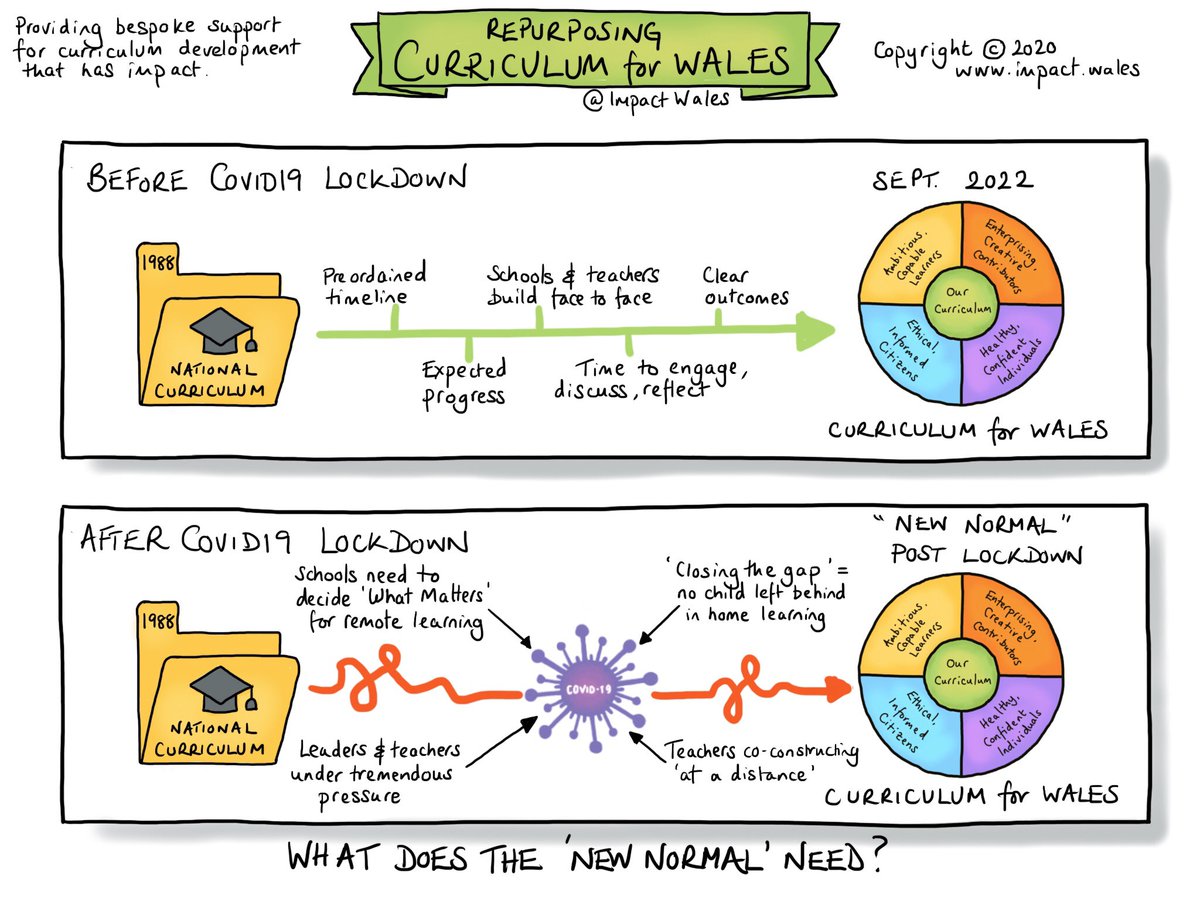 Providing bespoke support
for curriculum development
that has impact.
REPURPOSING
CURRICULUM for WALES
@ Impact Wales
Copyright © 2020
www.impact.wales
BEFORE COVID19 LOCKDOWN
1988
NATIONAL
CURRICULUM
Preordained
timeline
Expected
progress
Schools & teachers
build face to face
Time to engage,
discuss, reflect
Clear
outcomes
SEPT. 2022
Ambitious,
Capable
Learners
Enterprising,
Creative
Contributors
Our
Curriculum
Ethical,
Informed
Citizens
Healthy,
Confident
Individuals
CURRICULUM for WALES
AFTER COVID19 LOCKDOWN
1988
NATIONAL
CURRICULUM
Schools need to
decide 'What Matters'
for remote learning
Leaders & teachers
under tremendous
pressure
COVID-19
'Closing the gap' =
no child left behind
in home learning
Teachers co-constructing
'at a distance'
"NEW NORMAL"
POST LOCKDOWN
Ambitious,
Capable
Learners
Enterprising,
Creative
Contributors
Our
Curriculum
Ethical,
Informed
Citizens
Healthy,
Confident
Individuals
CURRICULUM for WALES
WHAT DOES THE 'NEW NORMAL' NEED?